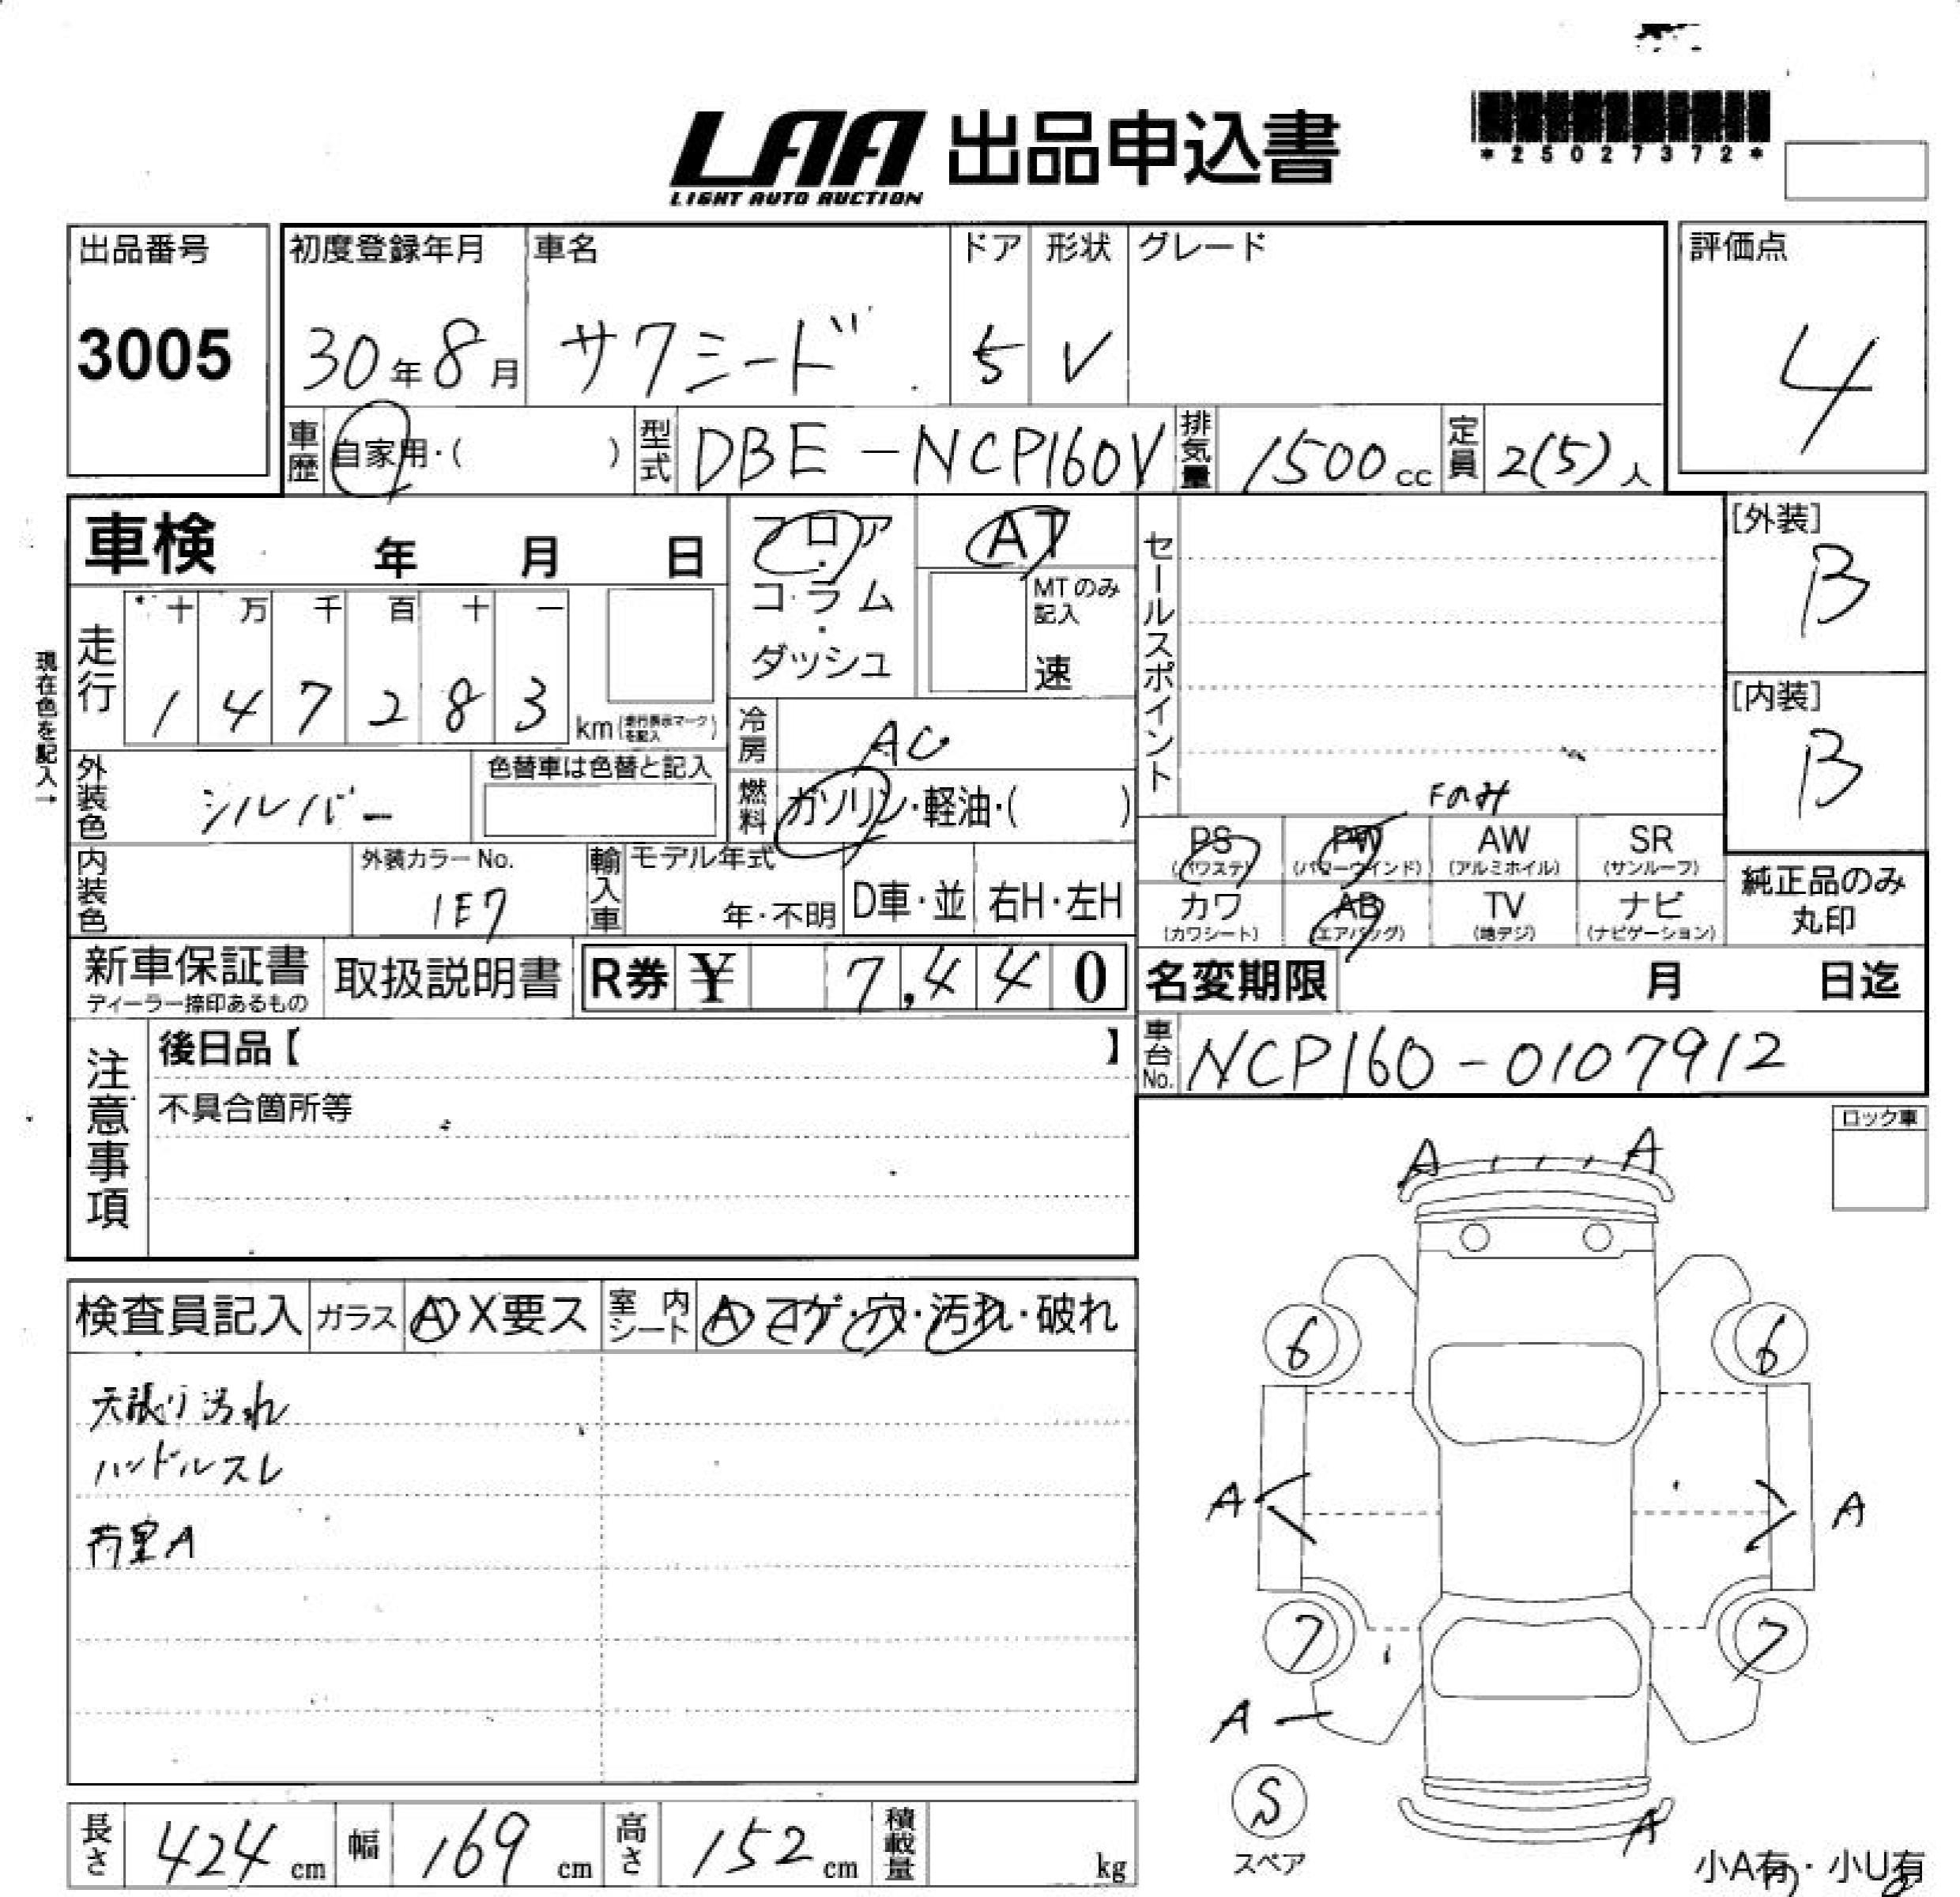 LAA 出品申込書
LIGHT AUTO AUCTION
*25027372*
出品番号 初度登録年月 車名 ドア 形状 グレード 評価点
3005 30年8月 サクシード 5 V 4
車歴 自家用・( ) 型式 DBE-NCP160V 排気量 1500cc 定員 2(5)人
車検 年 月 日 フロア・コラム・ダッシュ AT セールスポイント [外装]
B
MTのみ記入
速
現在色を記入→
走行 十 万 千 百 十 一
1 4 7 2 8 3 km(走行表示マークを記入)
[内装]
B
冷房 AC
外装色 シルバー 色替車は色替と記入 燃料 ガソリン・軽油・( )
Fのみ
PS PW AW SR
(パワステ) (パワーウインド) (アルミホイル) (サンルーフ)
カワ AB TV ナビ
(カワシート) (エアバッグ) (地デジ) (ナビゲーション)
純正品のみ
丸印
内装色 外装カラーNo. 1E7 輸入車 モデル年式 年・不明 D車・並 右H・左H
新車保証書 取扱説明書 R券 ¥ 7,440 名変期限 月 日迄
ディーラー捺印あるもの
車台No. NCP160-0107912
注意事項 後日品【 】
不具合箇所等
ロック車
A A
検査員記入 ガラス A・X要ス 室内シート A・コゲ・穴・汚れ・破れ
6 6
天張り汚れ
ハンドルスレ
荷室A
A A
7 7
A
S
スペア
A
長さ 424cm 幅 169cm 高さ 152cm 積載量 kg
小A有・小U有